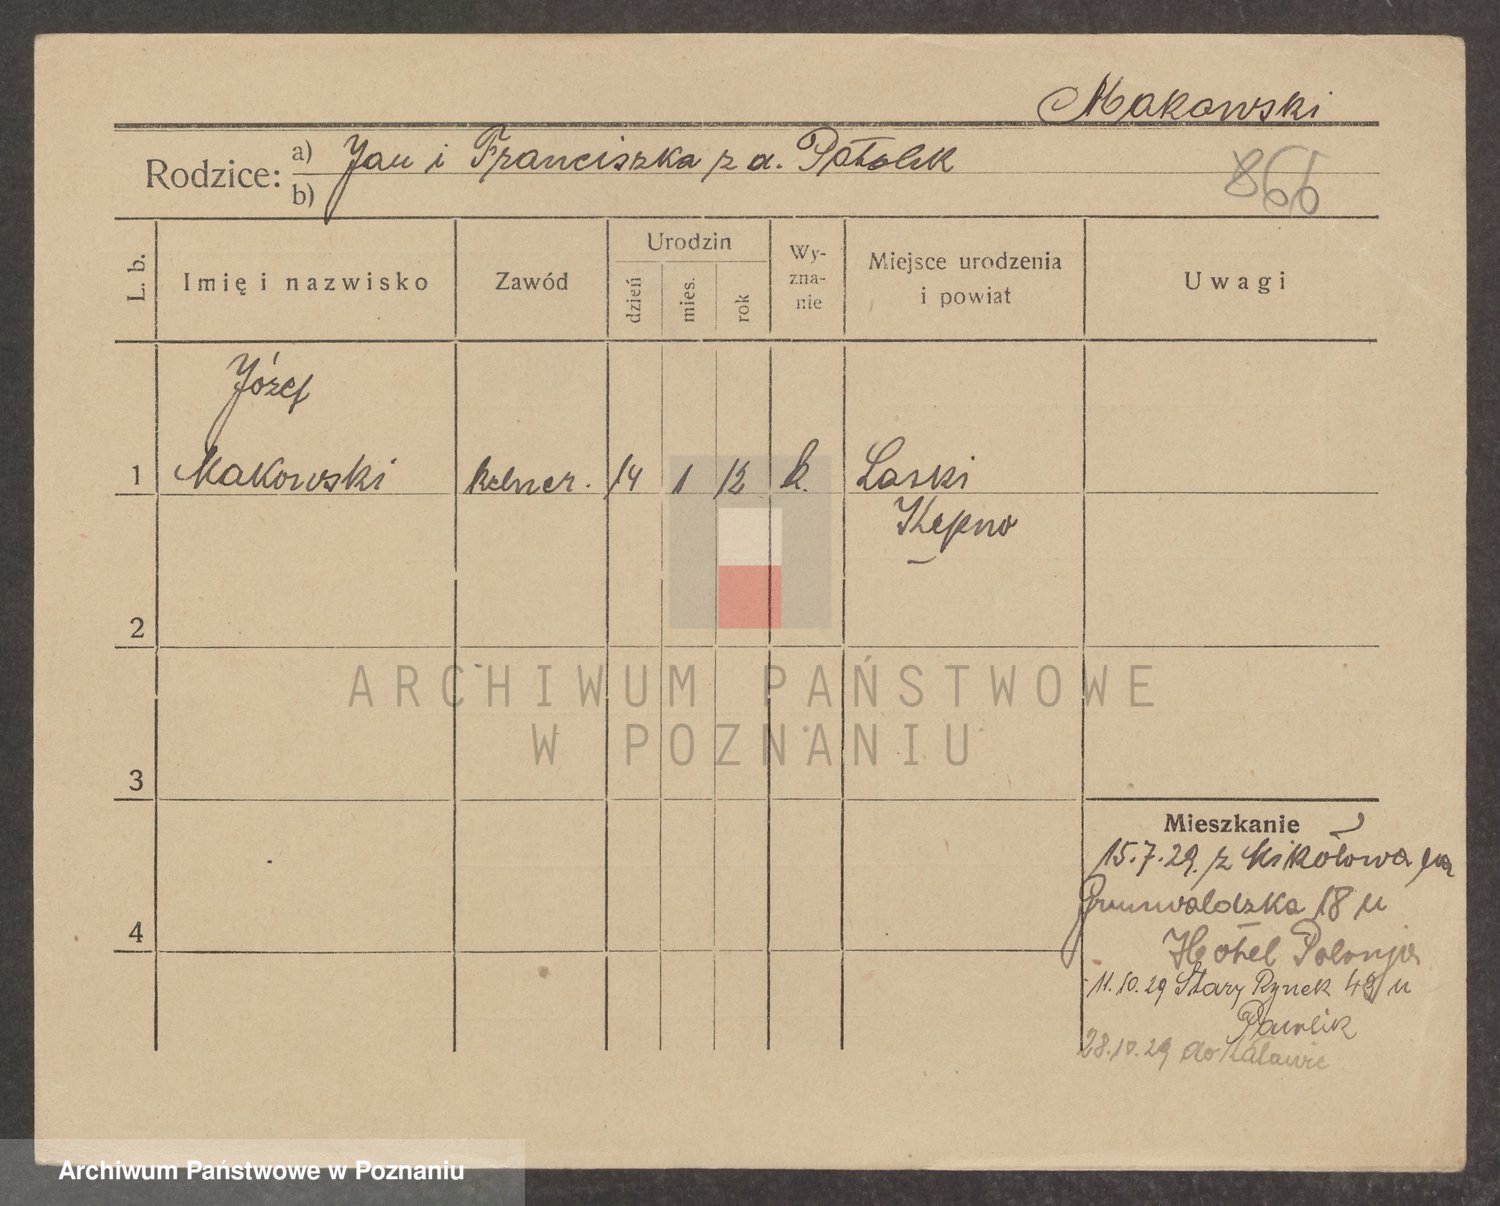 Makowski
Rodzice: a) Jan i Franciszka z d.
b)
866
L. b.
Imię i nazwisko
Zawód
Urodzin
dzień
mies.
rok
Wy-
zna-
nie
Miejsce urodzenia
i powiat
Uwagi
Józef
1 Makowski kelner. 14 1 12 k. Laski
Kępno
2
3
4
Mieszkanie
15.7.29. z Mikołowa na
Grunwaldzka 18 u
Hotel Polonja
11.10.29 Stary Rynek 43 u
Pawlik
28.10.29 do Katowic
ARCHIWUM PAŃSTWOWE
W POZNANIU
Archiwum Państwowe w Poznaniu